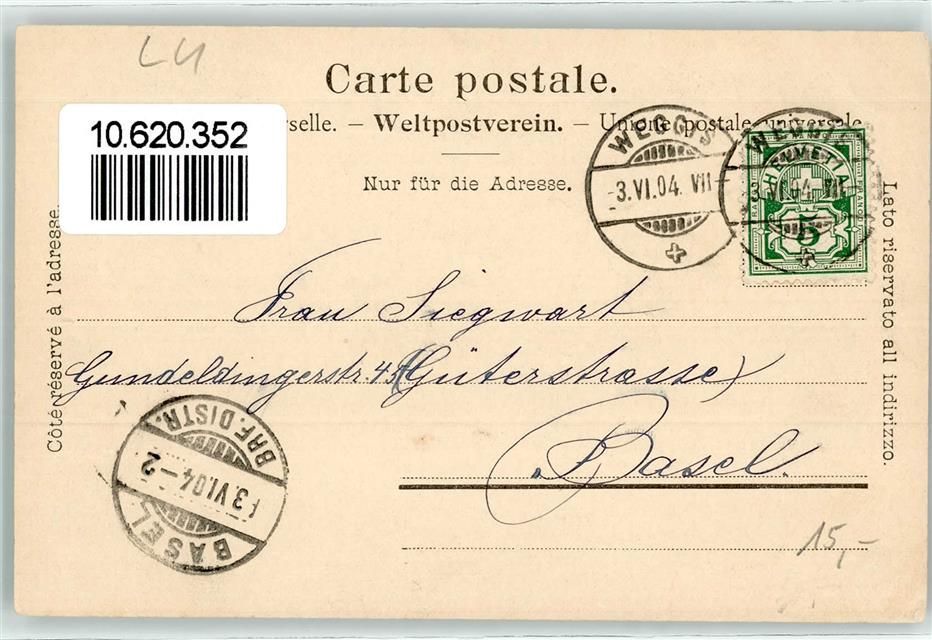 LU
Carte postale.
10.620.352
rselle. – Weltpostverein. – Unione postale universale
Nur für die Adresse.
WEGGIS
3.VI.04. VII
WEGGIS
3.VI.04. VII
HELVETIA
FRANCO
5
Côté réservé à l'adresse.
Lato riservato all indirizzo.
Frau Siegwart
Gundeldingerstr. 45 (Güterstrasse)
Basel.
BASEL
3 VI.04 – 2
BRF. DISTR.
15,-